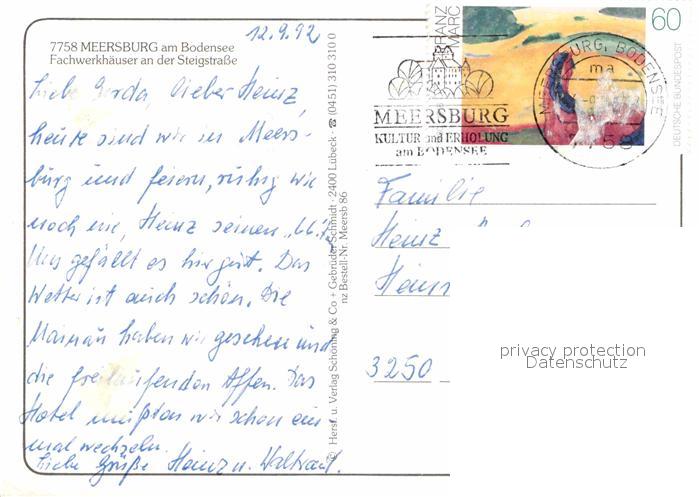 12.9.92
7758 MEERSBURG am Bodensee
Fachwerkhäuser an der Steigstraße
Liebe Gerda, lieber Heinz,
heute sind wir in Meers-
burg und feiern, ruhig wie
noch nie, Heinz seinen „66."
Uns gefällt es hier gut. Das
Wetter ist auch schön. Die
Mainau haben wir gesehen und
die freilaufenden Affen. Das
Hotel mußten wir schon ein
mal wechseln.
Liebe Grüße Heinz u. Waltraut.
© Herst. u. Verlag Schöning & Co + Gebrüder Schmidt · 2400 Lübeck · ☎ (0451) 310 310 0
nz Bestell-Nr. Meersb 86
FRANZ
MARC
60
DEUTSCHE BUNDESPOST
MEERSBURG
KULTUR und ERHOLUNG
am BODENSEE
MEERSBURG, BODENSEE
ma
7758
Familie
Heinz
3250
privacy protection
Datenschutz